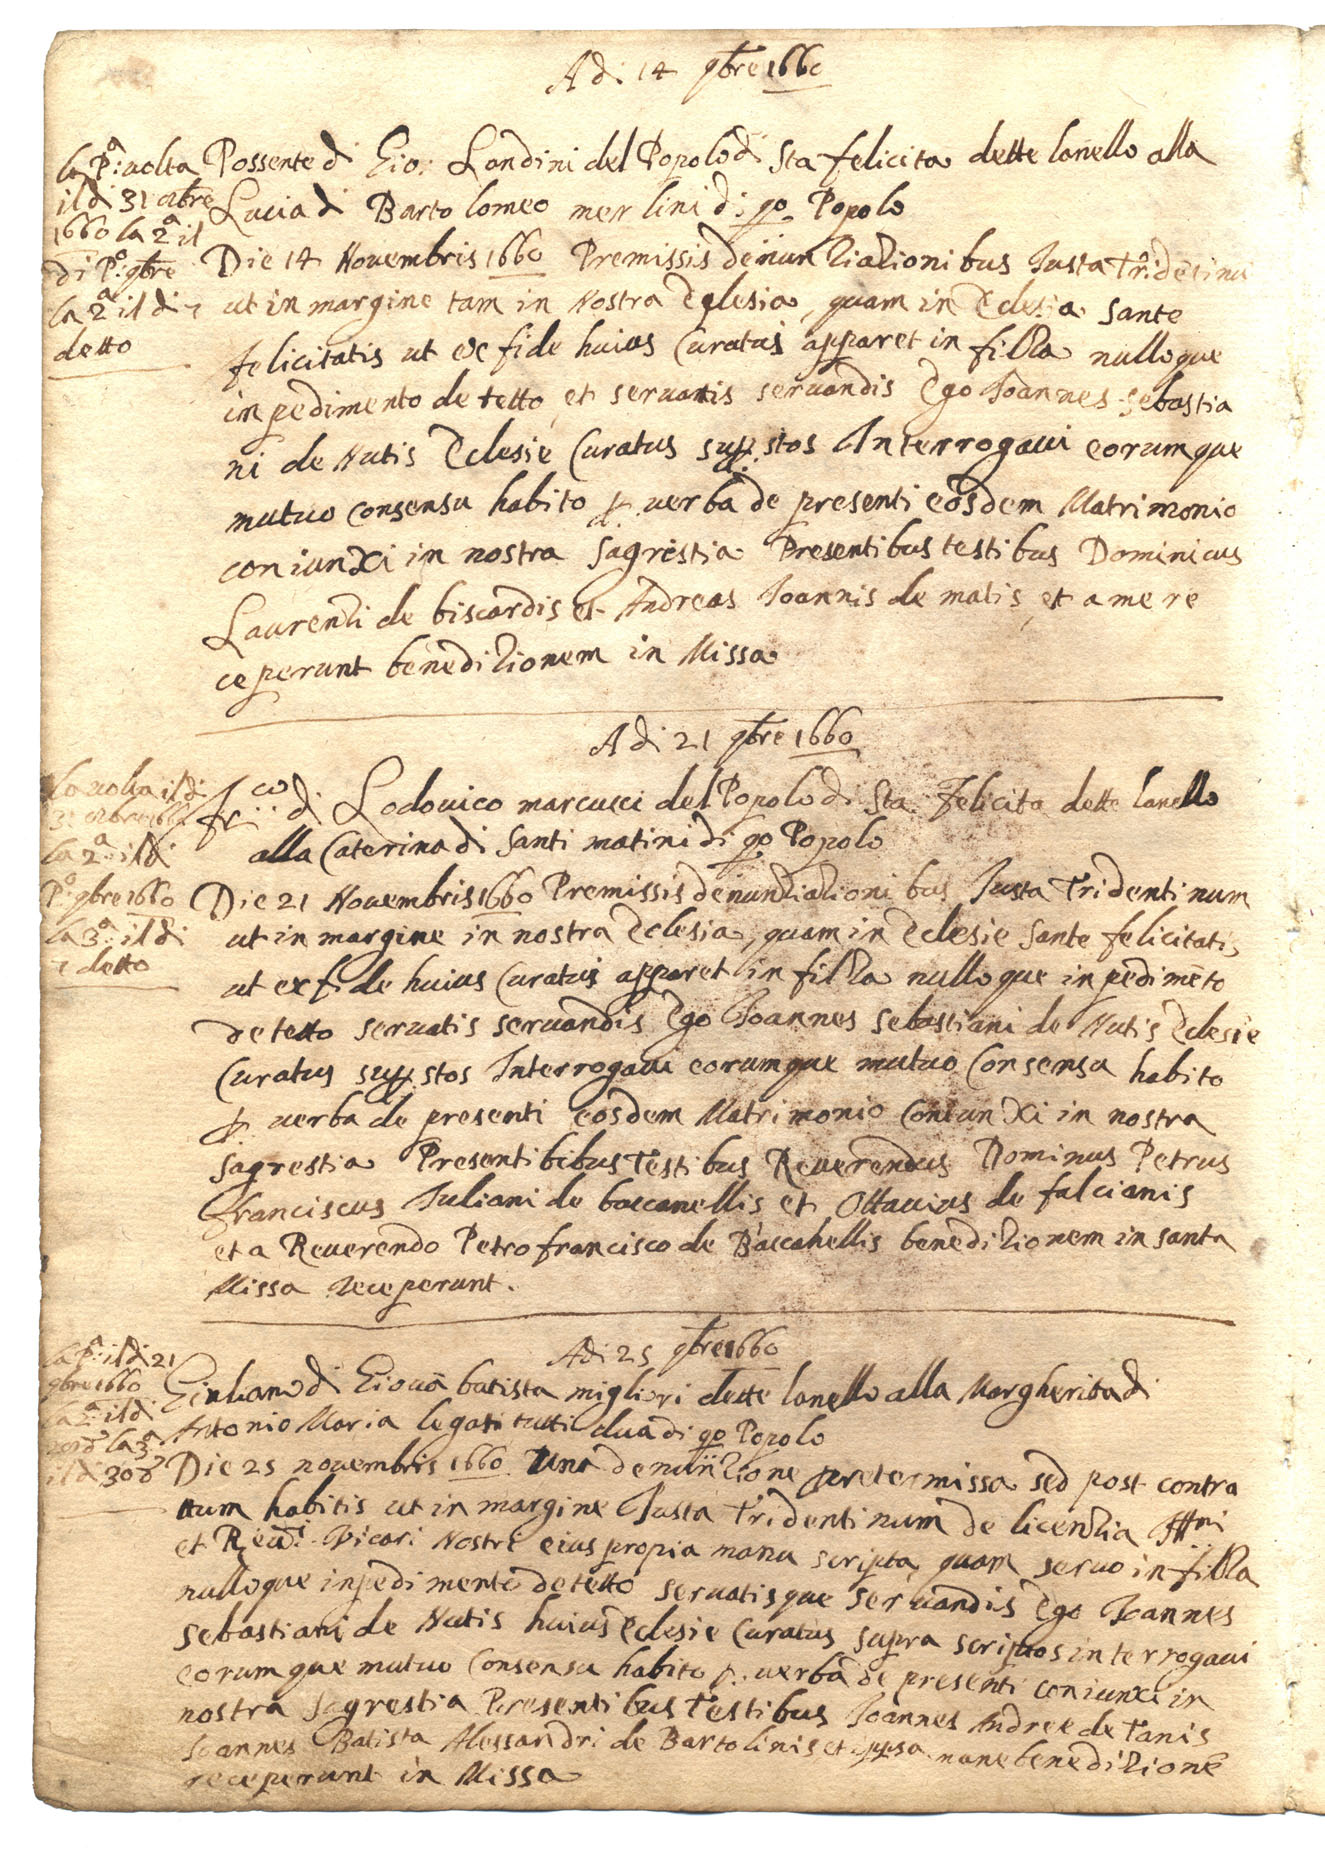 A di 14 9bre 1660
la Pa: uolta
il di 31 otbre
1660 la 2a il
di Po: 9bre
la 2a il di 7
detto
Possente di Gio: Landini del Popolo di Sta felicita dette lanello alla
Lucia di Bartolomeo merlini di qo Popolo
Die 14 Nouembris 1660 Premissis denuntiationibus Justa Tri.detinu
ut in margine tam in Nostra Eglesia, quam in Eclesia Sante
felicitatis ut ex fide huius Curatus apparet in filza nulloque
inpedimento detetto et seruatis seruandis Ego Joannes Sebastia
ni de Nutis Eclesie Curatus supp.stos Interrogaui eorumque
mutuo Consensu habito p. uerba de presenti eosdem Matrimonio
coniunXi in nostra Sagrestia Presentibus testibus Dominicus
Laurenti de biscardis et Andreas Joannis de matis, et a me re
ceperunt beneditionem in Missa
A di 21 9bre 1660
la uolta il di
31 otbre 1660
la 2a: il di
Po: 9bre 1660
la 3a: il di
7 detto
Fr:co di Lodouico marcucci del Popolo di Sta Felicita dette lanello
alla Caterina di Santi matini di qo Popolo
Die 21 Nouembris 1660 Premissis denuntiationibus Justa Tridentinum
ut in margine in nostra Eclesia, quam in Eclesie Sante felicitatis
ut ex fide huius Curatus apparet in filza nulloque inpedimēto
detetto seruatis seruandis Ego Joannes Sebastiani de Nutis Eclesie
Curatus supp.stos Interrogaui eorumque mutuo Consensu habito
p. uerba de presenti eosdem Matrimonio ConiunXi in nostra
Sagrestia Presentibibus Testibus Reuerendus Dominus Petrus
Franciscus Juliani de boccanellis et Ottauius de falcianis
et a Reuerendo Petro francisco de Baccahellis beneditionem in santa
Missa receperunt.
A di 25 9bre 1660
la Pa: il di 21
9bre 1660
la 2a: il di
la 3a
il di 30 d
Giuliano di Giouā batista migliori dette lanello alla Margherita di
Antonio Maria legati tutti dua di qo Popolo
Die 25 nouembris 1660 Una denuntione pretermissa sed post contra
tum habitis ut in margine Justa Tridentinum de licentia
et Reudi. Vicari Nostri eius propia manu scripta, quam seruo in filza
nulloque inpedimento detetto seruatisque seruandis Ego Joannes
Sebastiani de Nutis huius Eclesie Curatus supra scriptos interrogaui
eorumque mutuo Consensu habito p. uerba de presenti coniunxi in
nostra Sagrestia Presentibus Testibus Joannes Andree de Tanis
Joannes Batista Alessandri de Bartolinis et mane beneditionē
receperunt in Missa